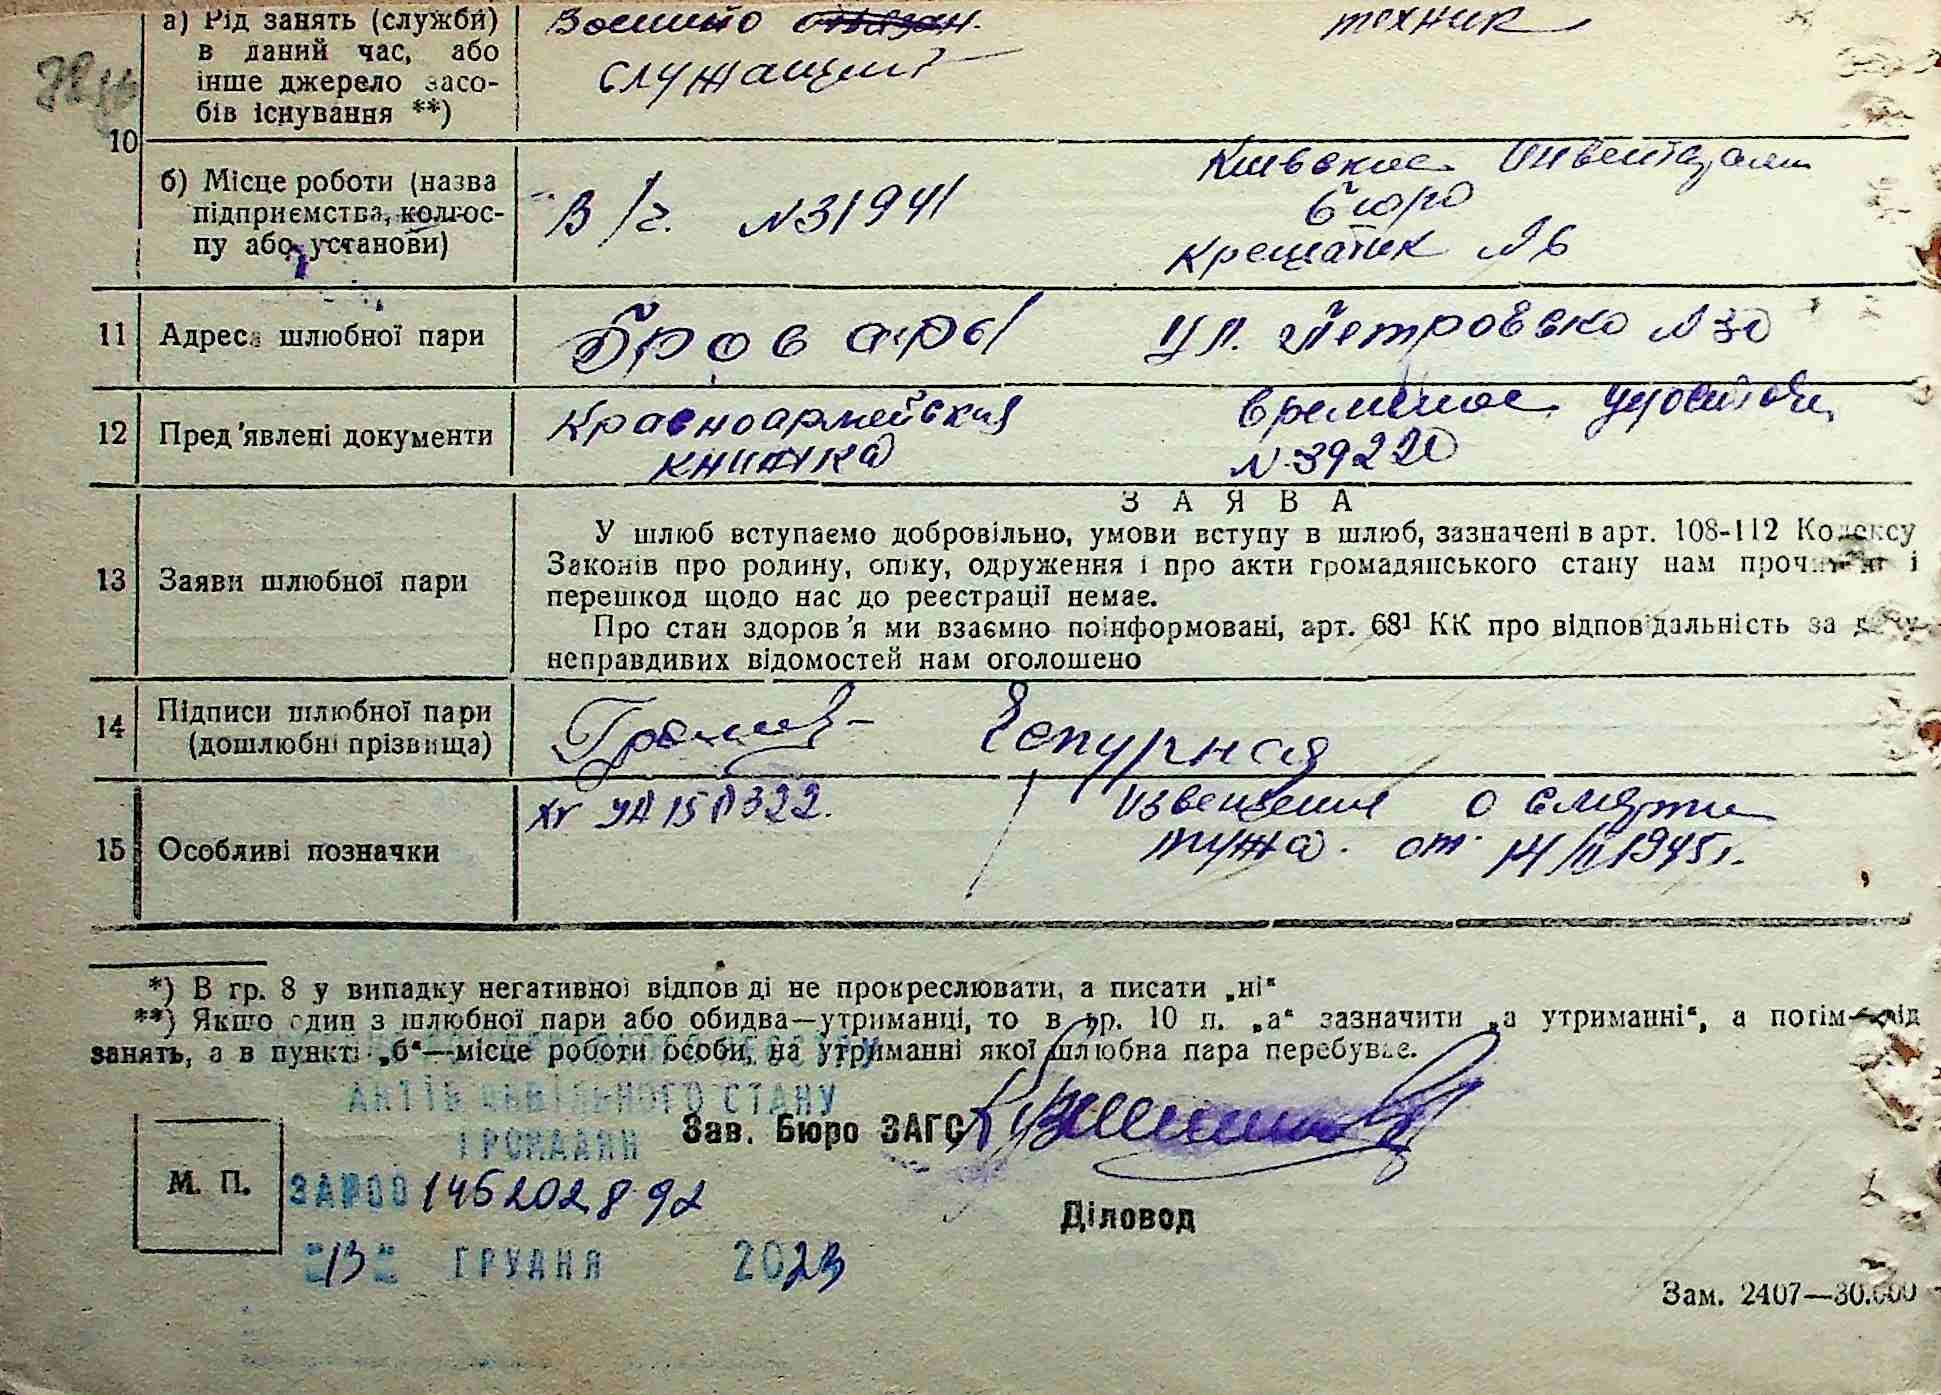 а) Рід занять (служби) в даний час, або інше джерело засобів існування **)
Военно обязан. служащий
техник
10
б) Місце роботи (назва підприємства, колгоспу або установи)
В/ч. № 31941
Киевское Инвентар
бюро
Крещатик № 6
11 Адреса шлюбної пари
Бровары ул. Петровско № 30
12 Пред'явлені документи
Красноармейская
книжка
временное удостовер
№ 39220
З А Я В А
13 Заяви шлюбної пари
У шлюб вступаємо добровільно, умови вступу в шлюб, зазначені в арт. 108-112 Кодексу
Законів про родину, опіку, одруження і про акти громадянського стану нам прочитані і
перешкод щодо нас до реєстрації немає.
Про стан здоров'я ми взаємно поінформовані, арт. 68¹ КК про відповідальність за дачу
неправдивих відомостей нам оголошено
14 Підписи шлюбної пари
(дошлюбні прізвища)
Чепурная
15 Особливі позначки
извещения о смерти
мужа. от 14/II 1945 г.
*) В гр. 8 у випадку негативної відповіді не прокреслювати, а писати „ні“
**) Якщо один з шлюбної пари або обидва—утриманці, то в гр. 10 п. „а“ зазначити „а утриманні“, а потім рід
занять, а в пункті „б“—місце роботи особи, на утриманні якої шлюбна пара перебуває.
АКТІВ ЦИВІЛЬНОГО СТАНУ
ГРОМАДЯН
Зав. Бюро ЗАГС
М. П.
146202892
Діловод
"13" ГРУДНЯ 2023
Зам. 2407—30.000